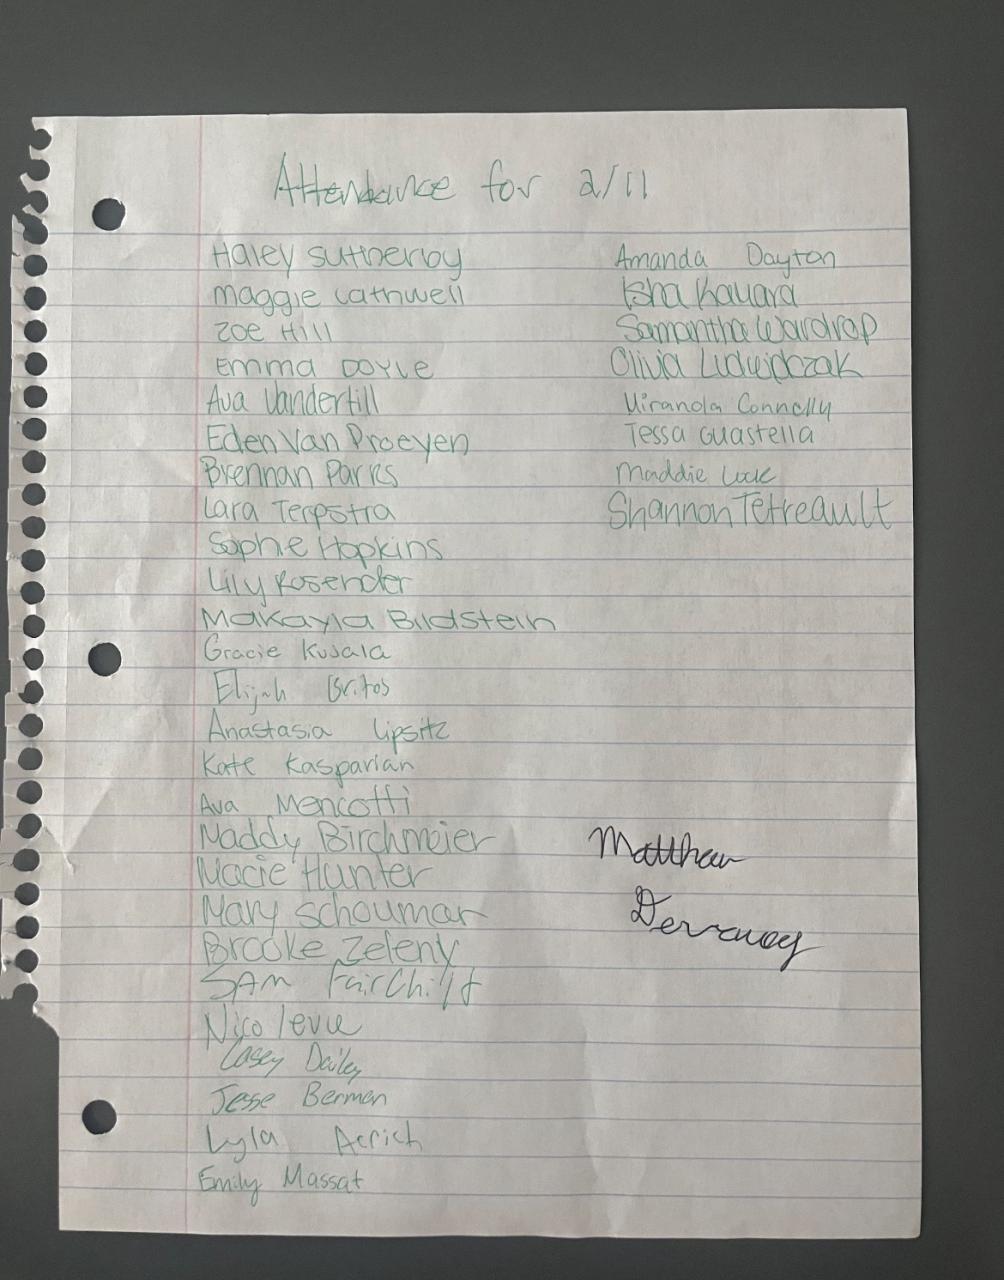 Attendance for 2/11
Haley Sutherby
Maggie Cathwell
Zoe Hill
Emma Doyle
Ava Vandertill
Eden Van Proeyen
Brennan Parks
Lara Terpstra
Sophie Hopkins
Lily
Makayla Bildstein
Gracie Kujala
Elijah Britos
Anastasia Lipsitz
Kate Kasparian
Ava Mencotti
Maddy Birchmeier
Macie Hunter
Mary Schoumar
Brooke Zeleny
SAM FairChild
Nico
Casey Dailey
Jesse Berman
Lyla
Emily Massat
Amanda Dayton
Isha
Samantha Wardrop
Olivia
Miranda Connolly
Tessa Guastella
Maddie
Shannon Tetreault
Matthew